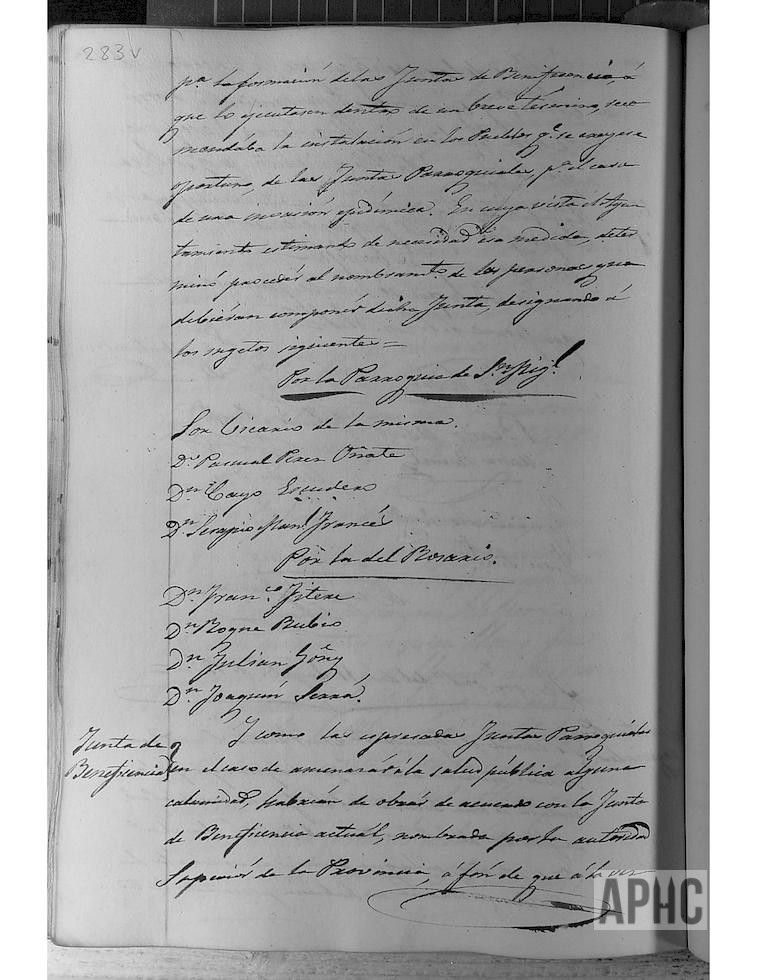 283v
pª. la formación de las Juntas de Beneficencia, á
que lo ejecutasen dentro de un breve término, reco
mendaba la instalación en los Pueblos qe. se creyese
oportuno, de las Juntas Parroquiales pª. el caso
de una invasión epidémica. En cuya vista el Ayun
tamiento estimando de necesidad esa medida, deter
minó proceder al nombramto. de las personas que
debieran componer dicha Junta, designando á
los sugetos siguientes =
Por la Parroquia de Sn. Migl.
Sor. Vicario de la misma.
Dn. Pascual Perez Oñate
Dn. Cayo Escudero
Dn. Serapio Manl. Francés
Por la del Rosario.
Dn. Franco. Jitere
Dn. Roque Rubio
Dn. Julian Goñy
Dn. Joaquín Serrá.
Y como las espresadas Juntas Parroquiales
Junta de
Beneficencia
en el caso de amenazar á la salud pública alguna
calamidad, habrán de obrar de acuerdo con la Junta
de Beneficencia actuál, nombrada por la autoridad
Superiór de la Provincia, á fin de que á la vez
APHC